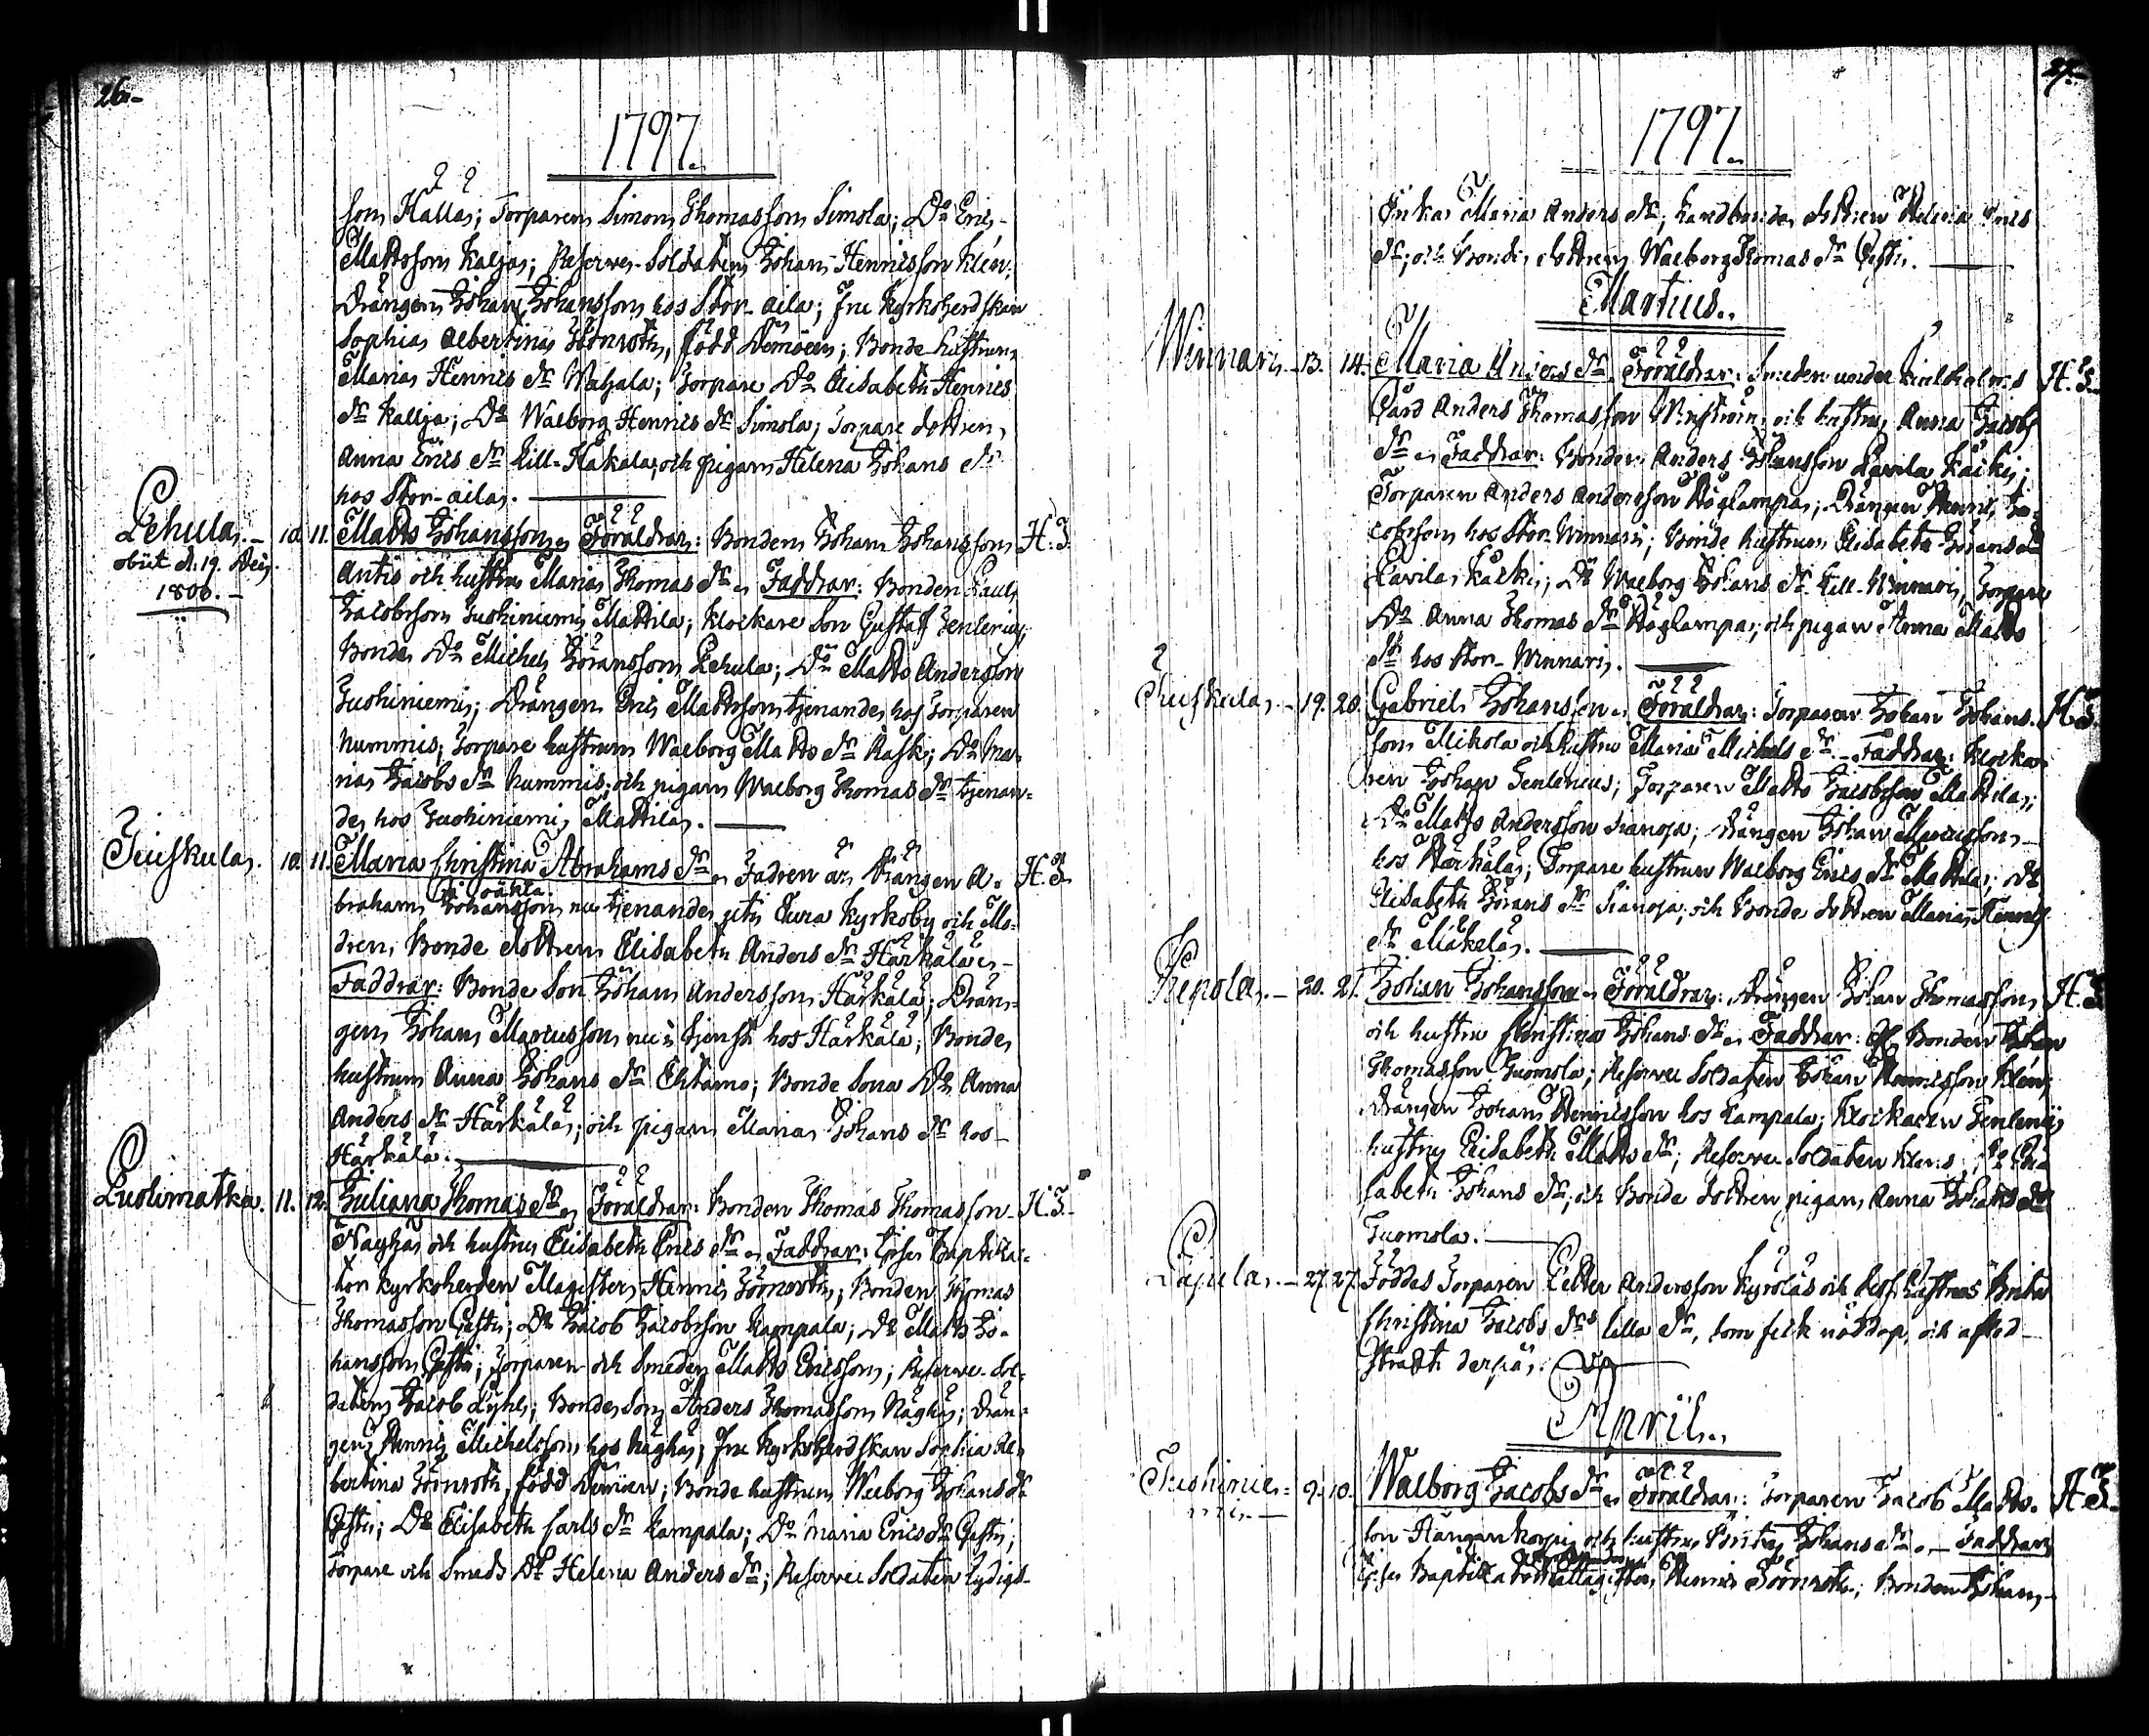 26.
1797.
son Kallas; Torparen Simon Thomasson Simola; Do Eric
Mattsson Kaljas; Reserve-Soldaten Johan Henricsson Klén;
Drängen Johan Johansson hos Stor-aila; Fru Kyrkoherdskan
Sophia Albertina, född; Bonde-hustrun
Maria Henrics dr Wahala; Torpare Do Elisabeth Henrics
dr Kallja; Do Walborg Henrics dr Simola; Torpare dottren
Anna Erics dr Lill-Hakala; och pigan Helena Johans dr
hos Stor-aila.
Lehula. 10. 11. Matts Johansson. Föräldrar: Bonden Johan Johansson H. T.
obiit d. 19.
1800.
Antis och hustru Maria Thomas dr. Faddrar: Bonden Paul
Jacobsson Juohiniemi Mattila; Klockare Son Gustaf Zenlerius;
Bonde Do Michel Göransson Lehula; Do Matts Andersson
Juohiniemi; Drängen Eric Mattsson tjenande hos Torparen
Nummis; Torpare hustrun Walborg Matts dr Rask; Do Ma-
ria Jacobs dr Nummis; och pigan Walborg Thomas dr tjenan-
de hos Juohiniemi Mattila.
Juskula. 10. 11. Maria Christina Abrahams dr. Fadren är Drängen A- H. T.
braham Johansson nu tjenande uti Eura Kyrkoby och Mo-
dren, Bonde dottren Elisabeth Anders dr Härkälä.
Faddrar: Bonde Son Johan Andersson Härkälä; Drän-
gen Johan Marcusson nu i tjenst hos Härkälä; Bonde
hustrun Anna Johans dr Ehtamo; Bonde Sona Do Anna
Anders dr Härkälä; och pigan Maria Johans dr hos
Härkälä.
Luolimatka. 11. 12. Juliana Thomas dr. Föräldrar: Bonden Thomas Thomasson H. T.
Näyhä och hustru Elisabeth Erics dr. Faddrar: Ipse Baptiza-
tor Kyrkoherden Magister Henric; Bonden Thomas
Thomasson Gesti; Do Jacob Jacobsson Kampala; Do Matts Jo-
hansson Gesti; Torparen och Smeden Matts Ericsson; Reserve-Sol-
daten Jacob; Bonde Son Anders Thomasson Näyhä; Drän-
gen Henric Michelsson hos Näyhä; Fru Kyrkoherdskan Sophia Al-
bertina, född; Bonde hustrun Walborg Johans dr
Gesti; Do Elisabeth Carls dr Kampala; Do Maria Erics dr Gesti;
Torpare och Smeds Do Helena Anders dr; Reserve Soldaten
27.
1797.
Enkan Maria Anders dr; Landbonde dottren Helena Erics
dr; och Bonde dottren Walborg Thomas dr Gesti.
Martius.
Winnari. 13. 14. Maria Anders dr. Föräldrar: Smeden under H. T.
Gård Anders Thomasson och hustru Anna Jacobs
dr. Faddrar: Bonden Anders Johansson Lavila Käcki;
Torparen Anders Andersson Höglampa; Drängen Henric Ja-
cobsson hos Stor-Winnari; Bonde hustrun Elisabeth Görans dr
Lavila Käcki; Do Walborg Johans dr Lill-Winnari; Torpare
Do Anna Thomas dr Höglampa; och pigan Anna Matts
dr hos Stor-Winnari.
Juskula. 19. 20. Gabriel Johansson. Föräldrar: Torparen Johan Johans- H. T.
son Mikola och hustru Maria Michels dr. Faddrar: Klocka-
ren Johan Zenlerius; Torparen Matts Jacobsson Mattila;
Do Matts Andersson Sianoja; Drängen Johan Marcusson
hos Härkälä; Torpare hustrun Walborg Erics dr Mattila; Do
Elisabeth Görans dr Sianoja; och Bonde dottren Maria Henrics
dr Mäkelä.
Repola. 20. 21. Johan Johansson. Föräldrar: Drängen Johan Thomasson H. T.
och hustru Christina Johans dr. Faddrar: Bonden Johan
Thomasson Tuomola; Reserve Soldaten Johan Henricsson Klén;
Drängen Johan Henricsson hos Kampala; Klockaren Zenlerii
hustru Elisabeth Matts dr; Reserve Soldaten Kléns Do Eli-
sabeth Johans dr; och Bonde dottren pigan Anna Johans dr
Tuomola.
27. 27. Föddes Torparen Petter Andersson Kyrölä och dess hustrus Brita
Christina Jacobs drs lilla dr, som feck nöddop, och afled
strax derpå.
Aprill.
Juohinie- 9. 10. Walborg Jacobs dr. Föräldrar: Torparen Jacob Matts- H. T.
mi.
son och hustru Brita Johans dr. Faddrar
Ipse Baptizator Magister Henric; Bonden Johan